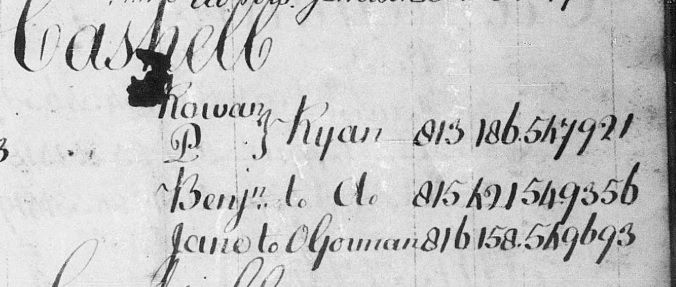 Cashell
Rowan
P to Ryan 813 186.547921
3
Benjn. to Do 815 421 549356
Jane to OGorman 816 158.549693